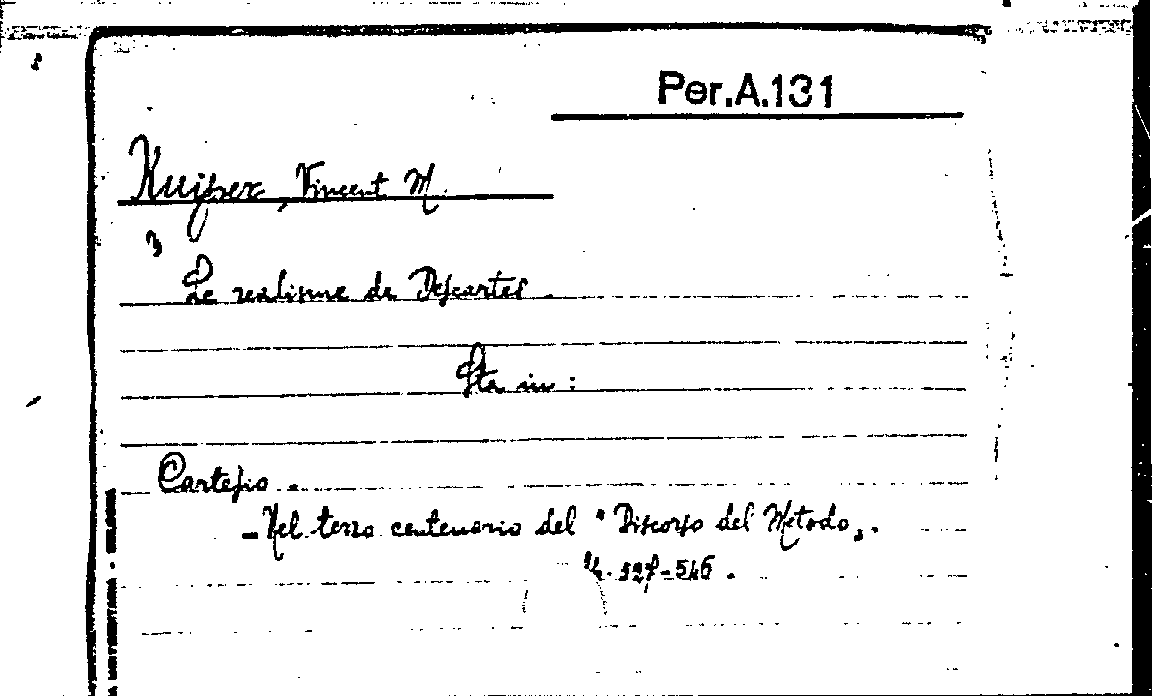 Per.A.131
Kuiper, Vincent M.
Le realisme de Descartes.
Sta in:
Cartesio.
- Nel terzo centenario del "Discorso del Metodo".